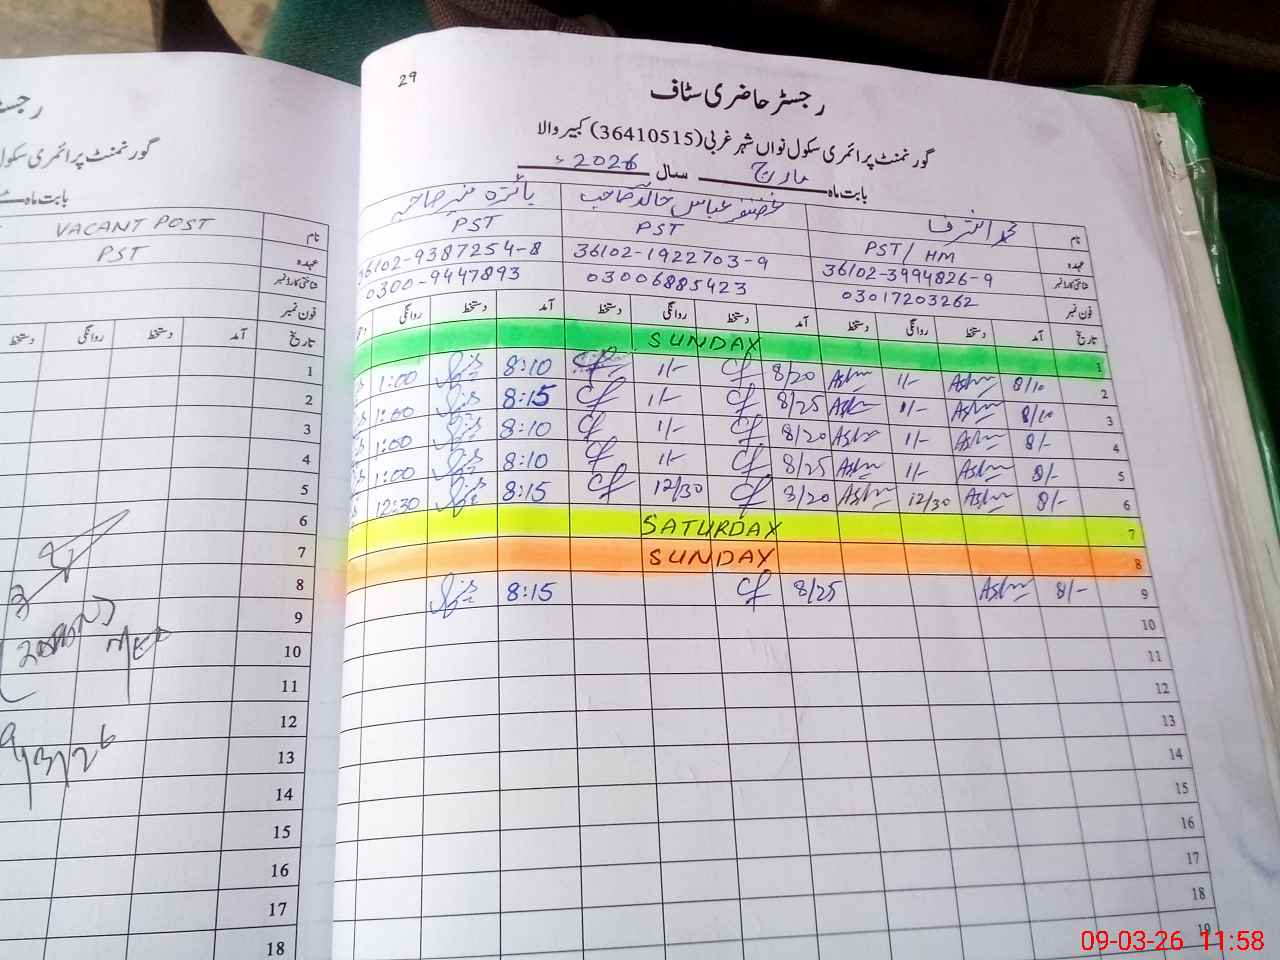 29
رجسٹر حاضری سٹاف
گورنمنٹ پرائمری سکول نواں شہر غربی (36410515) کبیر والا
بابت ماہ مارچ سال 2026ء
نام محمد اشرف غضنفر عباس خالد صاحب صاحبہ
عہدہ PST/HM PST PST
36102-3994826-9 36102-1922703-9 36102-9387254-8
فون نمبر 03017203262 03006885423 0300-9447893
تاریخ آمد دستخط روانگی دستخط آمد دستخط روانگی دستخط آمد دستخط روانگی
1 SUNDAY
2 8/10 1/- 8/20 1/- 8:10 1:00
3 8/10 1/- 8/25 1/- 8:15 1:00
4 8/- 1/- 8/20 1/- 8:10 1:00
5 8/- 1/- 8/25 1/- 8:10 1:00
6 8/- 12/30 8/20 12/30 8:15 12:30
7 SATURDAY
8 SUNDAY
9 8/- 8/25 8:15
10
11
12
13
14
15
16
17
18
19
رجسٹر
گورنمنٹ پرائمری سکول
بابت ماہ
نام VACANT POST
عہدہ PST
فون نمبر
تاریخ آمد دستخط روانگی دستخط
1
2
3
4
5
6
7
8
9
10
11
12
13
14
15
16
17
18
9/3/26
09-03-26 11:58